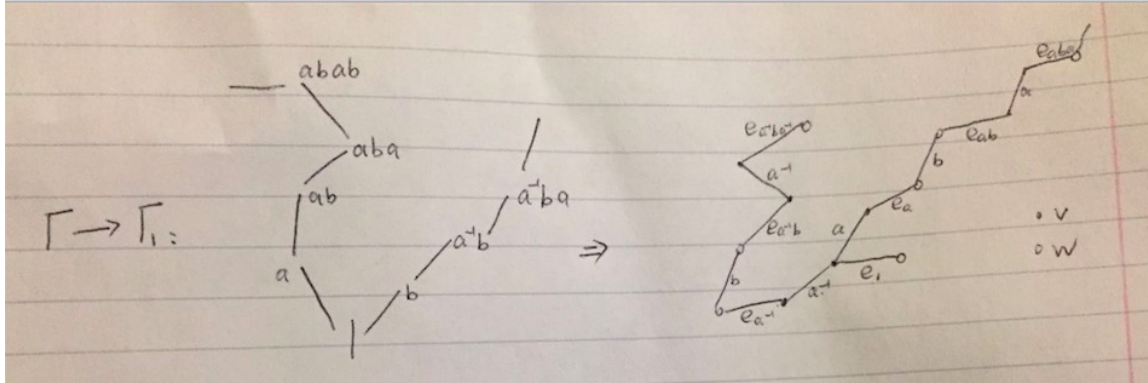 Γ → Γ₁:
abab
aba
ab
a
1
b
a⁻¹b
a⁻¹ba
⇒
e_{a⁻¹ba⁻¹}
a⁻¹
e_{a⁻¹b}
b
e_{a⁻¹}
a⁻¹
e₁
a
e_a
b
e_{ab}
a
• V
○ W